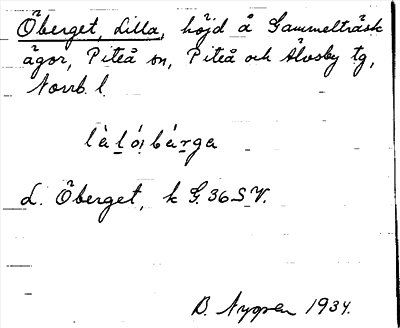 Öberget, Lilla, höjd å Gammelträsk
ägor, Piteå sn, Piteå och Älvsby tg,
Norrb. l.
là ló́ bár̠ga
L. Öberget, k G. 36 S.V.
B. Nygren 1934.